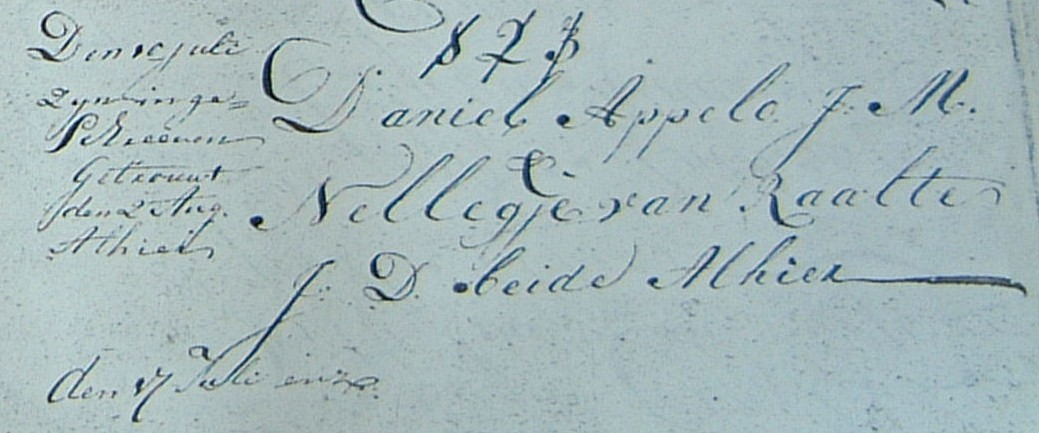 Den 10 juli
zyn inge=
Schreeven
Getrouwt
den 2 Aug.
Alhier
1 2 3
Daniel Appelo J. M.
&
Nellegje van Raalte
J. D. beide Alhier
den 17 Juli enz.